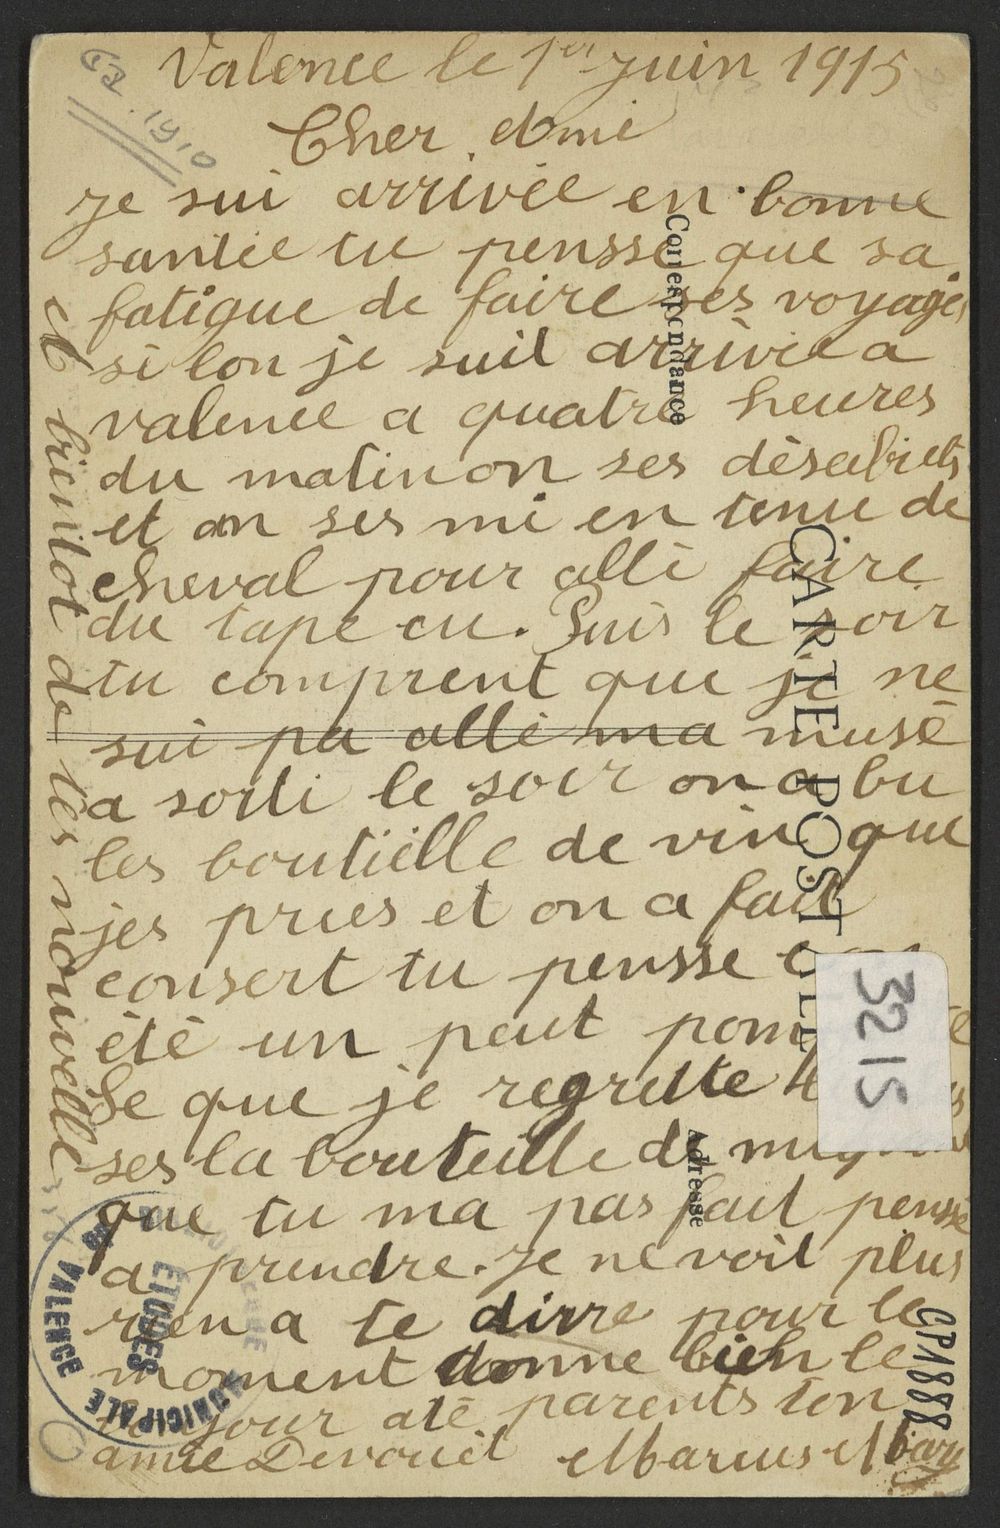 Valence le 1er Juin 1915
Cher Ami
Je sui arrivée en bonne
santée tu pensse que sa
fatigue de faire ses voyages
si lon je suit arrivée a
valence a quatre heures
du matin on ses dèsabiets
et on ses mi en tenu de
cheval pour allè faire
du tape cu. Puis le soir
tu comprent que je ne
sui pa allè ma musè
a sorti le soir on a bu
les boutiëlle de vin que
jes pries et on a fait
consert tu pensse
étè un peut
Se que je regrette
ses la bouteille de
que tu ma pas fait pensse
a prendre. Je ne voit plus
rien a te dirre pour le
moment donne bien le
jour atè parents ton
amie Devouèt Marius Mary
et bientot de tes nouvelles
17.1910
Correspondance
CARTE POSTALE
Adresse
3215
CP1888
ÉTUDES
MUNICIPALE
VALENCE